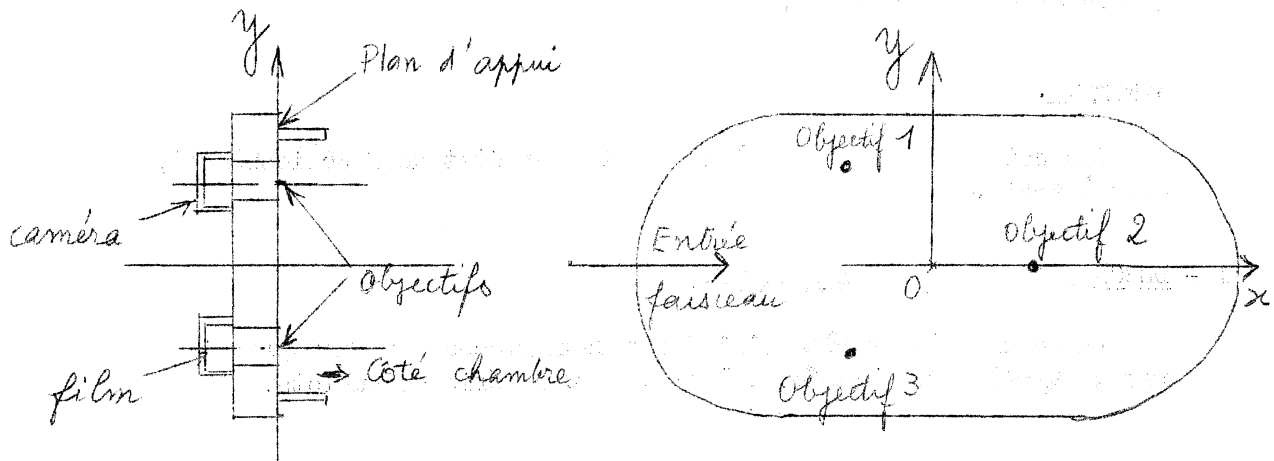 y
Plan d'appui
caméra
Objectifs
film
→ Côté chambre
y
Objectif 1
Entrée
faisceau
Objectif 2
O
x
Objectif 3